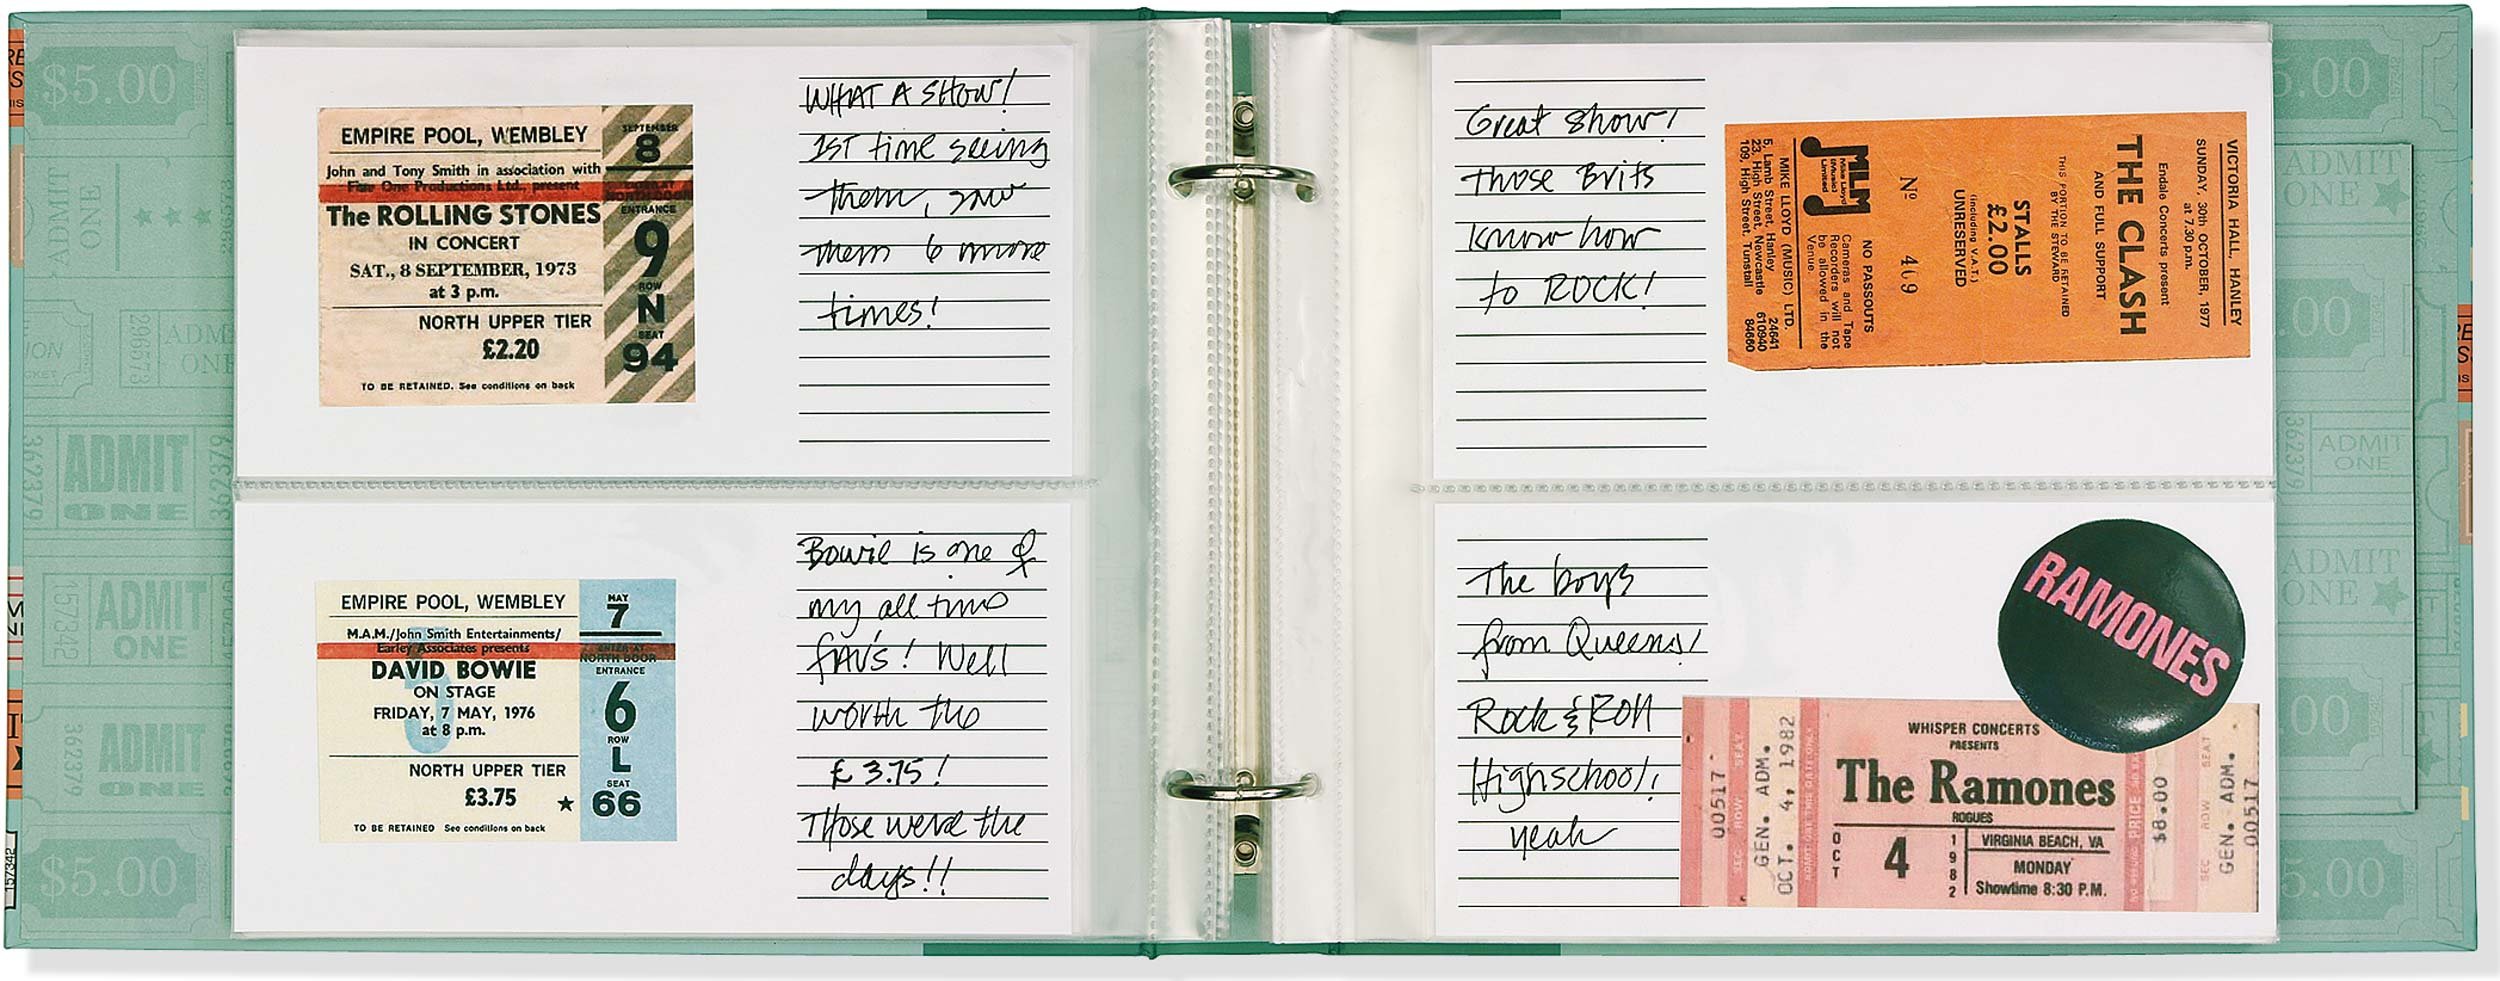 EMPIRE POOL, WEMBLEY
John and Tony Smith in association with
Five One Productions Ltd., present
The ROLLING STONES
IN CONCERT
SAT., 8 SEPTEMBER, 1973
at 3 p.m.
NORTH UPPER TIER
£2.20
TO BE RETAINED. See conditions on back
SEPTEMBER
8
NORTH DOOR
ENTRANCE
9
ROW
N
SEAT
94
WHAT A SHOW!
1ST time seeing
them, saw
them 6 more
times!
EMPIRE POOL, WEMBLEY
M.A.M./John Smith Entertainments/
Earley Associates presents
DAVID BOWIE
ON STAGE
FRIDAY, 7 MAY, 1976
at 8 p.m.
NORTH UPPER TIER
£3.75
TO BE RETAINED See conditions on back
MAY
7
ENTER AT
NORTH DOOR
ENTRANCE
6
ROW
L
SEAT
66
Bowie is one of
my all time
FAV'S! Well
worth the
£3.75!
Those were the
days!!
Great show!
Those Brits
know how
to ROCK!
VICTORIA HALL, HANLEY
SUNDAY, 30th OCTOBER, 1977
at 7.30 p.m.
Endale Concerts present
THE CLASH
AND FULL SUPPORT
THIS PORTION TO BE RETAINED
BY THE STEWARD
STALLS
£2.00
(including V.A.T.)
UNRESERVED
Nº 409
NO PASSOUTS
Cameras and Tape
Recorders will not
be allowed in the
Venue.
MLM
Mike Lloyd
(Music)
Limited
MIKE LLOYD (MUSIC) LTD.
5, Lamb Street, Hanley 24641
23, High Street, Newcastle 610940
109, High Street, Tunstall 84660
The boys
from Queens!
Rock & Roll
Highschool!
yeah
RAMONES
00517
SEC ROW SEAT
GEN. ADM.
OCT. 4, 1982
WHISPER CONCERTS
PRESENTS
The Ramones
ROGUES
OCT 4 1982
VIRGINIA BEACH, VA
MONDAY
Showtime 8:30 P.M.
$8.00
SEC ROW SEAT
GEN. ADM.
00517
$5.00
ADMIT
ONE
296573
ADMIT
ONE
362379
ADMIT
ONE
362379
157342
ADMIT
ONE
362379
ADMIT
ONE
$5.00
157342
5.00
ADMIT
ONE
.00
362379
ADMIT
ONE
ADMIT
ONE
.00
5.00